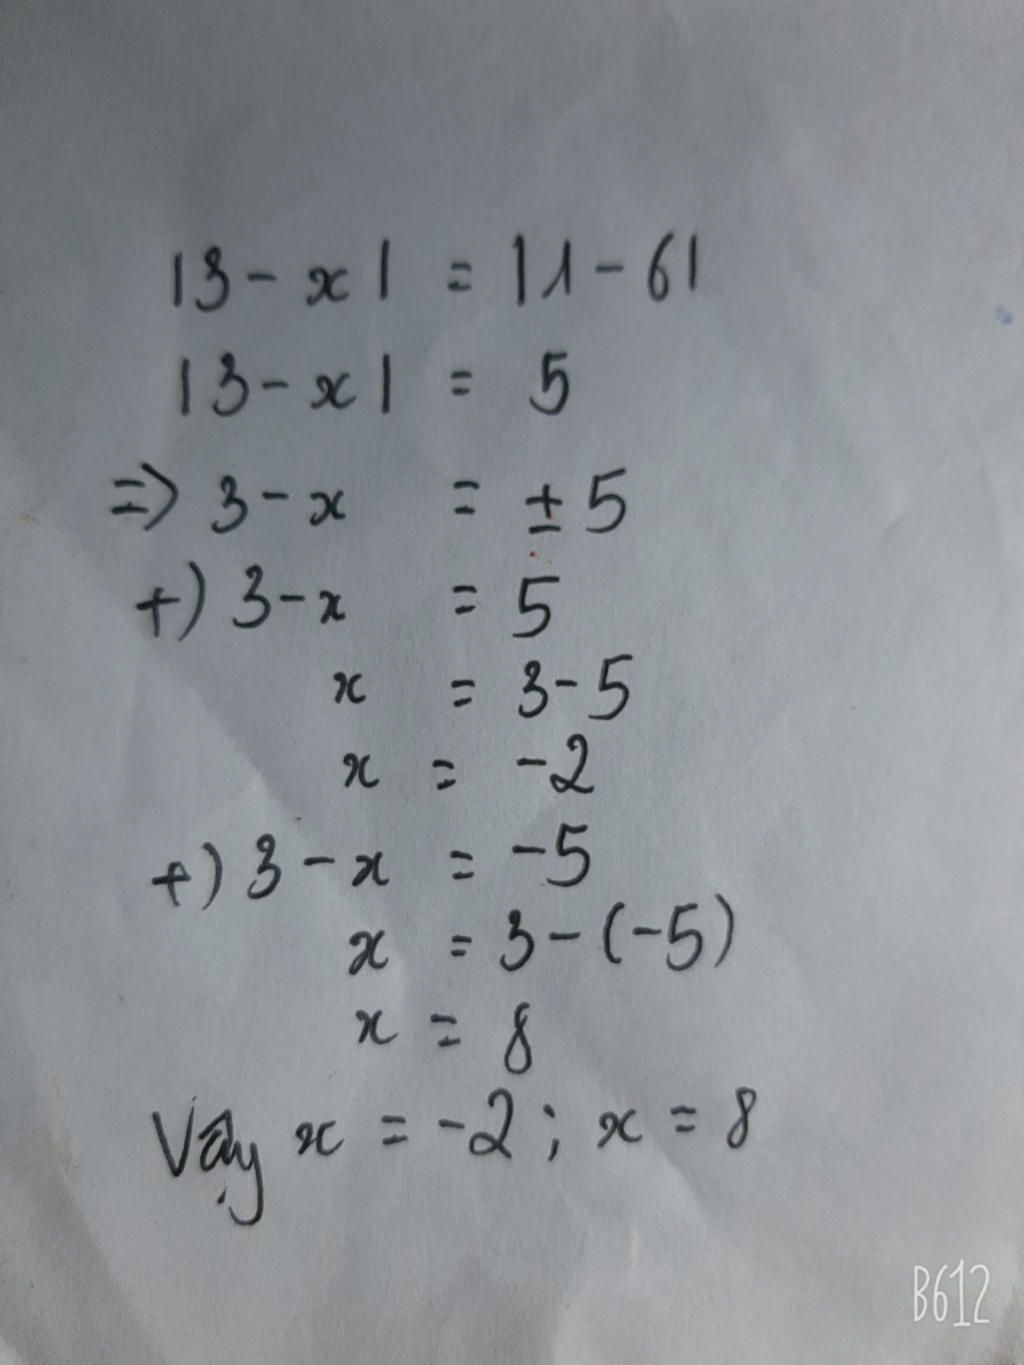 |3 - x| = |1 - 6|
|3 - x| = 5
=> 3 - x = ± 5
+) 3 - x = 5
x = 3 - 5
x = -2
+) 3 - x = -5
x = 3 - (-5)
x = 8
Vậy x = -2 ; x = 8
B612